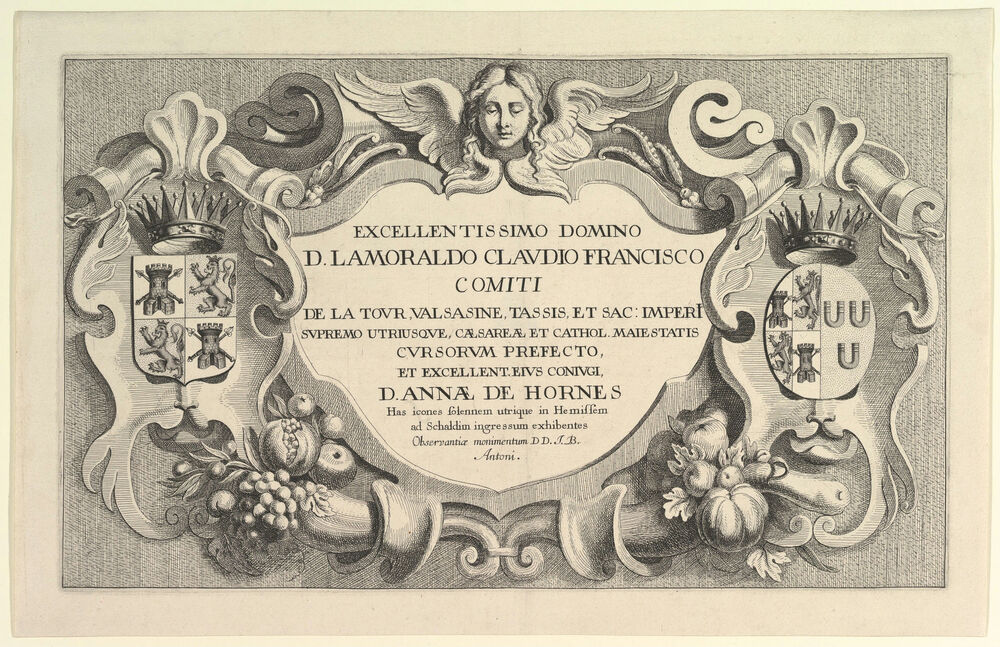 EXCELLENTISSIMO DOMINO
D. LAMORALDO CLAVDIO FRANCISCO
COMITI
DE LA TOVR, VALSASINE, TASSIS, ET SAC: IMPERI
SVPREMO UTRIUSQVE, CÆSAREÆ, ET CATHOL. MAIESTATIS
CVRSORVM PREFECTO,
ET EXCELLENT. EIVS CONIVGI,
D. ANNÆ DE HORNES
Has icones solennem utrique in Hemissem
ad Schaldim ingressum exhibentes
Observantiæ monimentum D D. I. B.
Antoni.